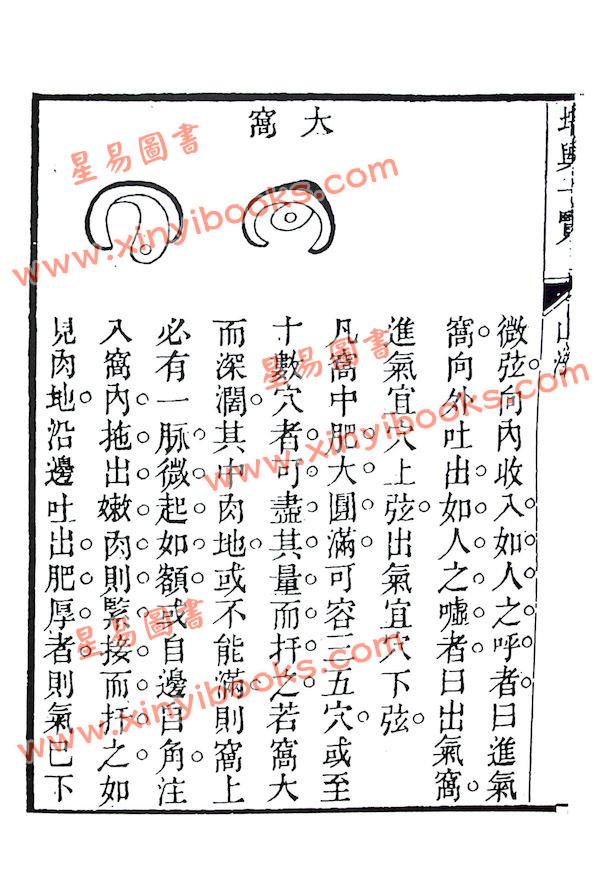 微弦向內收入如人之呼者曰進氣
窩向外吐出如人之噓者曰出氣窩
進氣宜穴上弦出氣宜穴下弦
大窩
凡窩中肥大圓滿可容三五穴或至
十數穴者可盡其量而扦之若窩大
而深濶其中肉地或不能滿則窩上
必有一脉微起如額或自邊自角注
入窩內拖出嫩肉則緊接而扦之如
見肉地沿邊吐出肥厚者則氣已下
星易圖書
www.xinyibooks.com
星易圖書
www.xinyibooks.com
星易圖書
www.xinyibooks.com